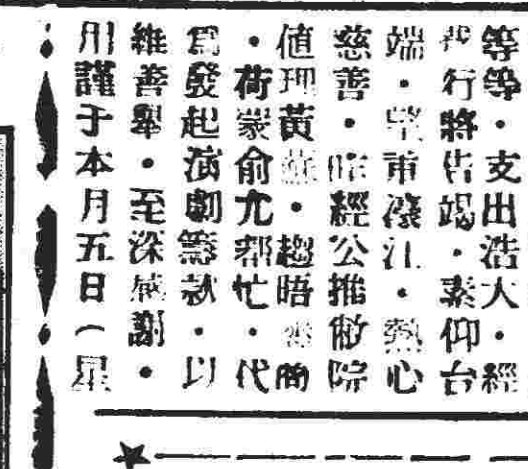 等等・支出浩大・經
行將告竭・素仰台
端・甫濠江・熱心
慈善・昨經公推敝院
值理黃・趨晤商
・荷蒙俞尤幇忙・代
爲發起演劇籌款・以
維善舉・至深感謝・
用謹于本月五日（星